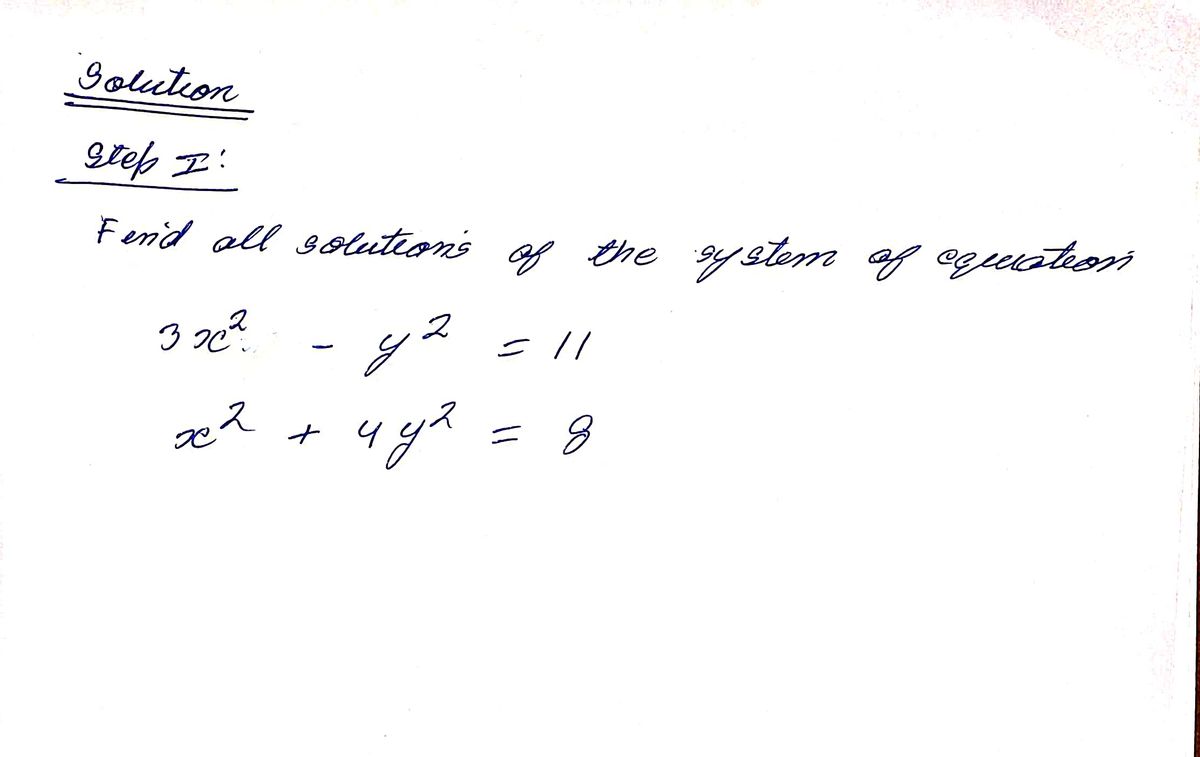 Solution
Step I:
Find all solutions of the system of equation
3x² - y² = 11
x² + 4y² = 8